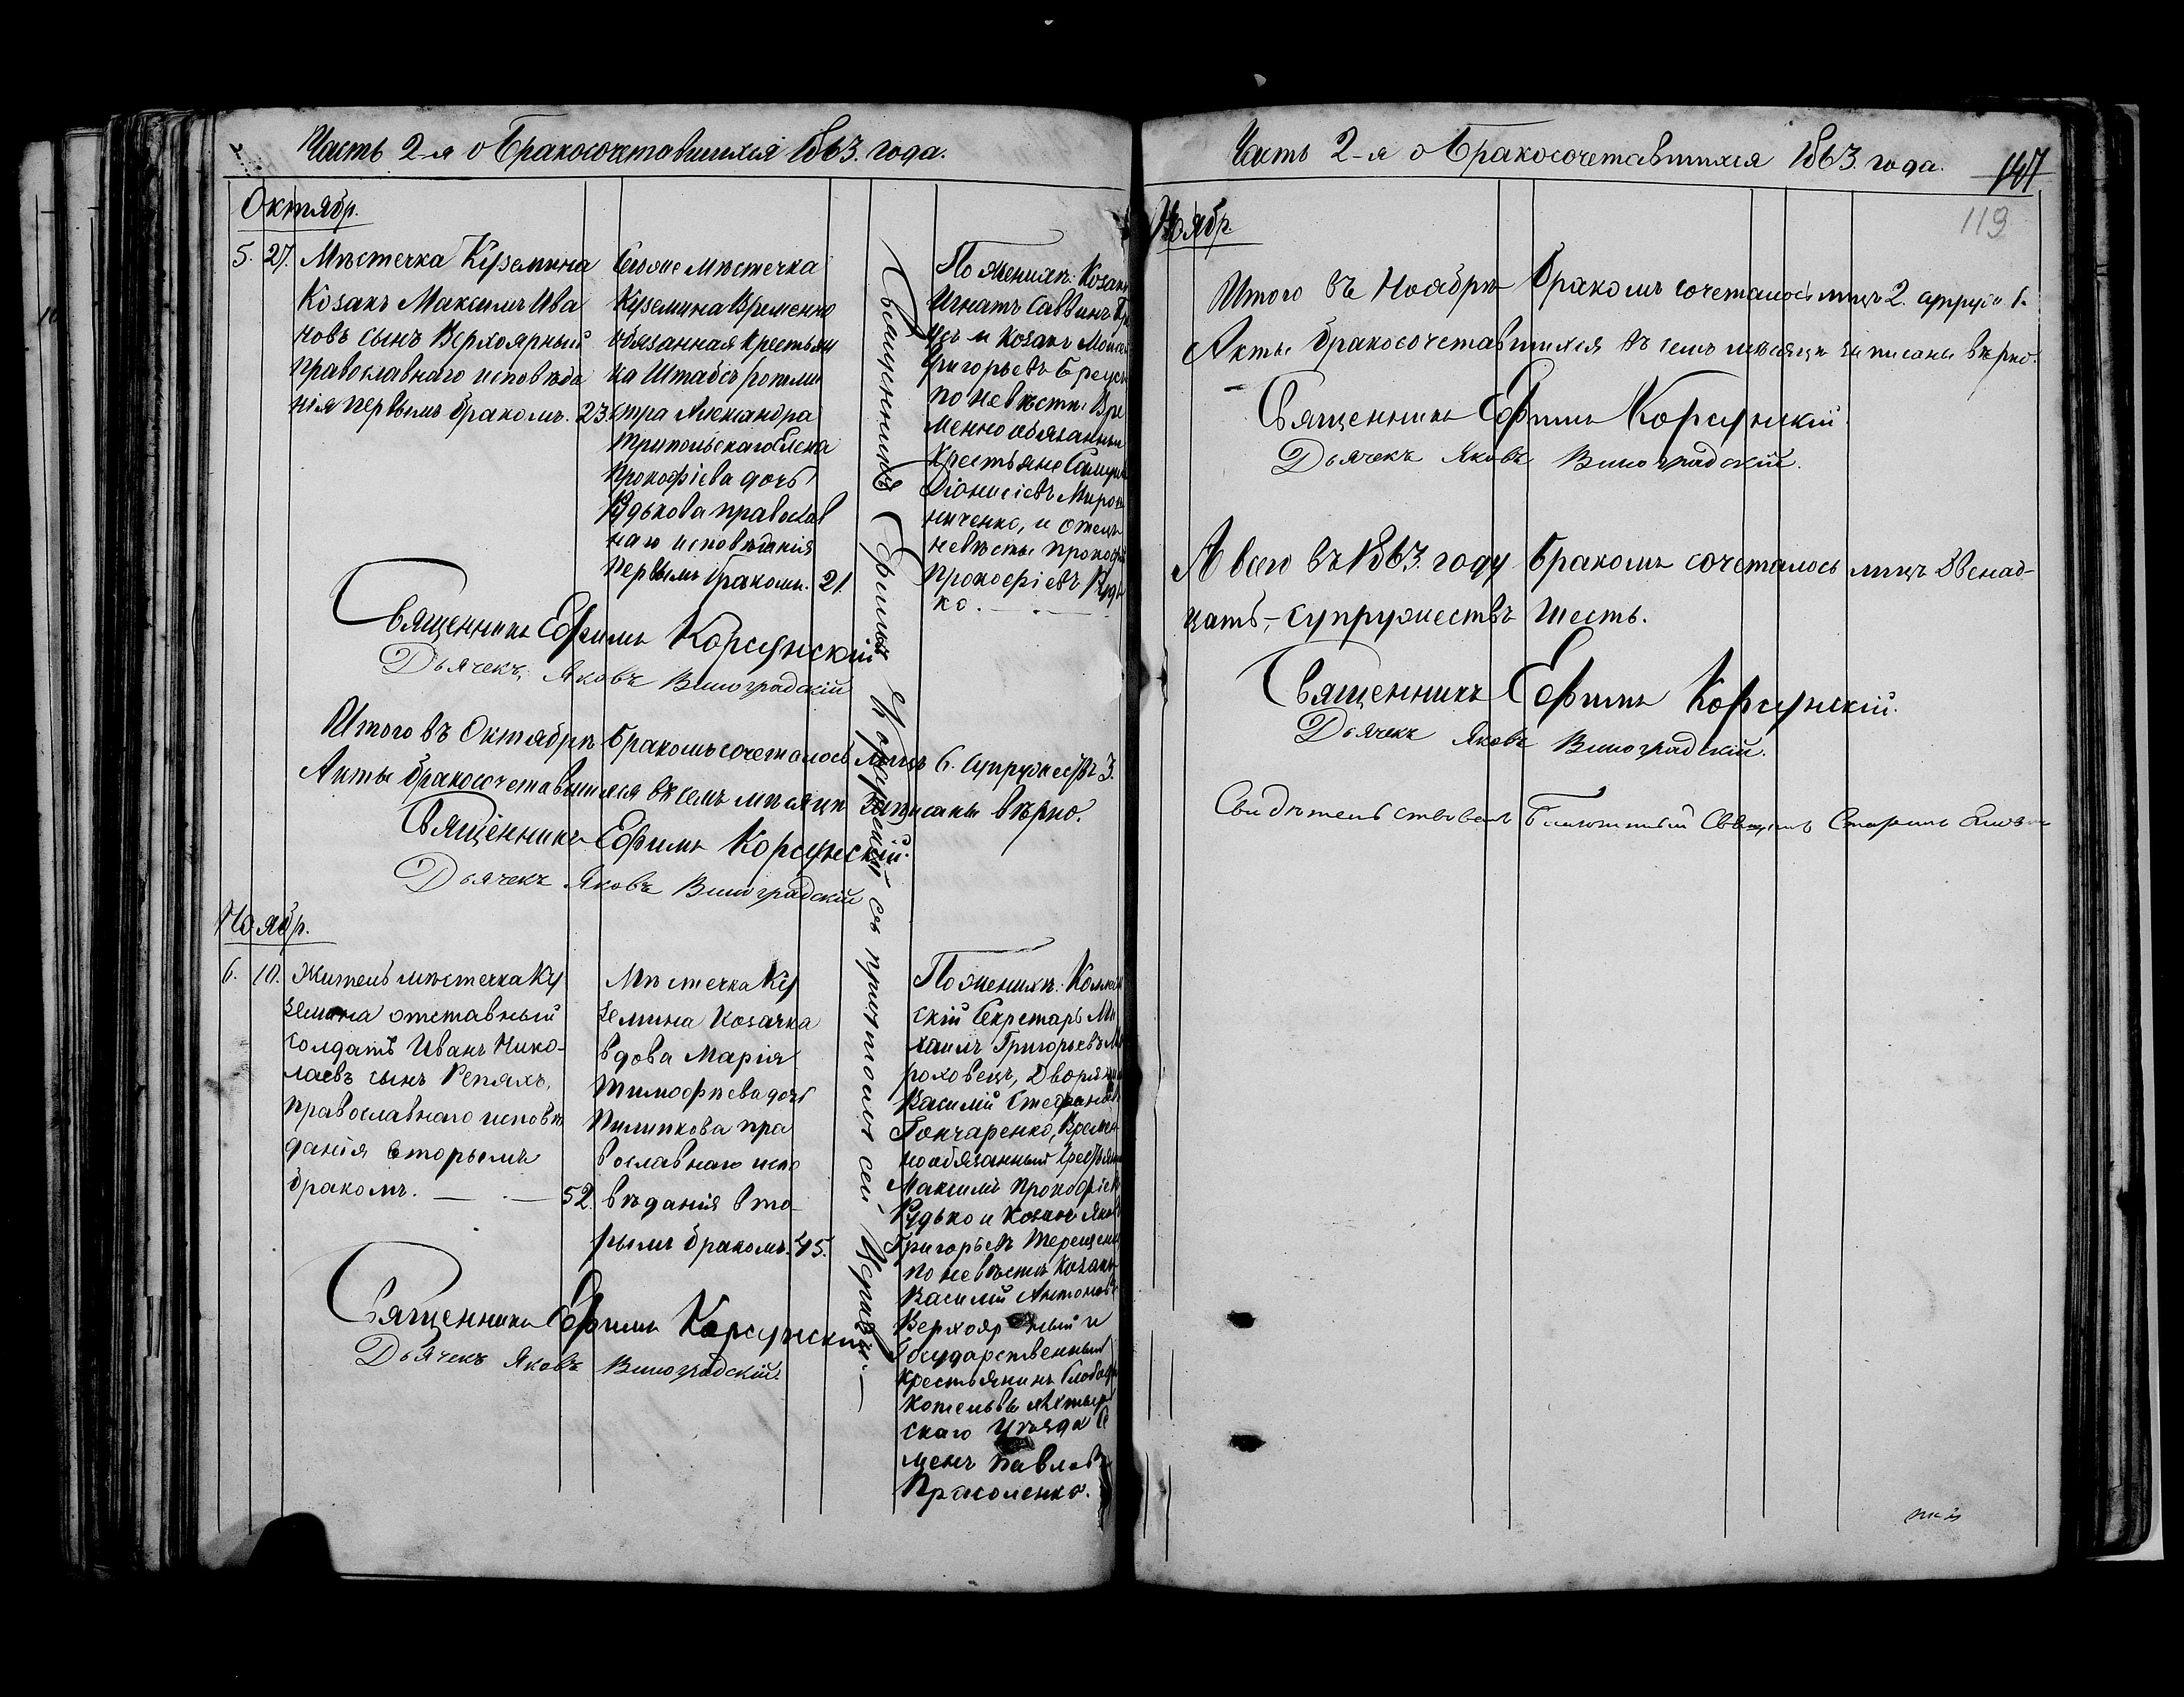 Часть 2-я о Бракосочетавшихся 1863. года.
Октябр.
5. 27. Мѣстечка Куземина
Козакъ Максимъ Ива
новъ сынъ Верхоярный
православнаго исповѣда
нія первымъ бракомъ. 23.
Сегоже мѣстечка
Куземина Временно
обязанная крестьян
ка Штабсъ ротми
стра Александра
Трипольскаго
Прокофіева дочь
Рудькова православ
наго исповѣданія
первымъ бракомъ. 21.
Священникъ Ефимъ Корсунскій съ причтомъ сей Церкви.
По женихѣ: Козакъ
Игнатъ Саввинъ
и Козакъ
Григорьевъ
по невѣстѣ: Вре
менно обязанные
Крестьяне
Діонисіевъ Мирош
ниченко, и отецъ
невѣсты Прокофій
Прокофіевъ Рудь
ко.
Священникъ Ефимъ Корсунскій
Дьячекъ, Яковъ Виноградскій
Итого въ Октябрѣ бракомъ сочеталось лицъ 6. супружествъ 3.
Акты бракосочетавшихся въ семъ мѣсяцѣ записаны вѣрно.
Священникъ Ефимъ Корсунскій.
Дьячекъ Яковъ Виноградскій
Ноябр.
6. 10. Житель мѣстечка Ку
земина отставный
солдатъ Иванъ Нико-
лаевъ сынъ Репяхъ,
православнаго исповѣ
данія вторымъ
бракомъ. — 52.
Мѣстечка Ку
земина Козачка
вдова Марія
Тимофѣева дочь
Пилипкова пра
вославнаго испо
вѣданія вто-
рымъ бракомъ. 45.
По женихѣ: Коллеж
скій Секретарь Ми
хаилъ Григорьевъ
роховецъ, Дворянинъ
Василій Стефановъ
Гончаренко, Времен
нообязанный крестьянинъ
Максимъ Прокофіевъ
Рудько и Козакъ Яковъ
Григорьевъ Терещенко
по невѣстѣ Козакъ
Василій Антоновъ
Верхоярный и
Государственный
крестьянинъ Слободы
Котельвы Ахтыр
скаго уѣзда Се
менъ Павловъ
Прасоленко.
Священникъ Ефимъ Корсунскій
Дьячекъ Яковъ Виноградскій.
Часть 2-я о Бракосочетавшихся 1863. года.
119
Ноябр.
Итого въ Ноябрѣ бракомъ сочеталось лицъ 2. супруж. 1.
Акты бракосочетавшихся въ семъ мѣсяцѣ записаны вѣрно.
Священникъ Ефимъ Корсунскій.
Дьячекъ Яковъ Виноградскій.
А всего въ 1863. году бракомъ сочеталось лицъ двенад-
цать,- супружествъ шесть.
Священникъ Ефимъ Корсунскій.
Дьячекъ Яковъ Виноградскій.
Свидѣтельствовалъ